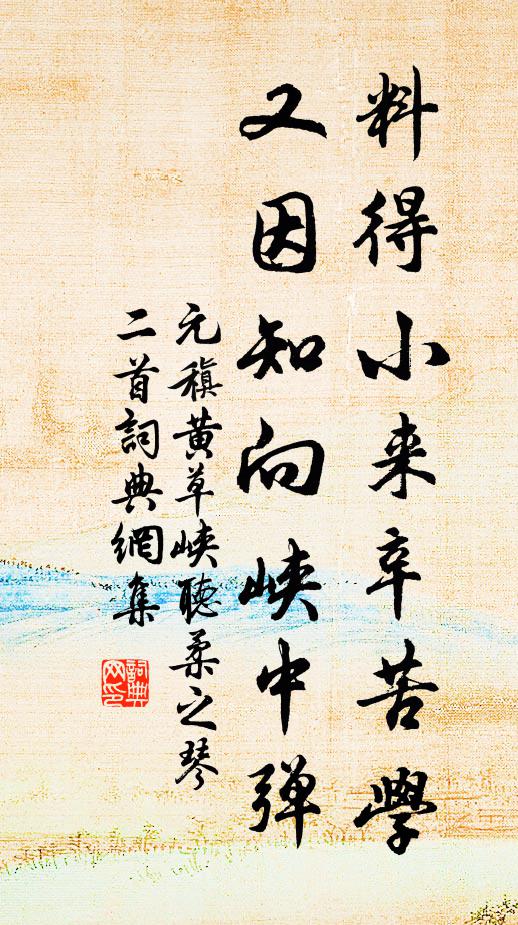 料得小来辛苦學
又因知向峽中彈
元稹黄草峽聽柔之琴
二首詞典網集
詞典网印